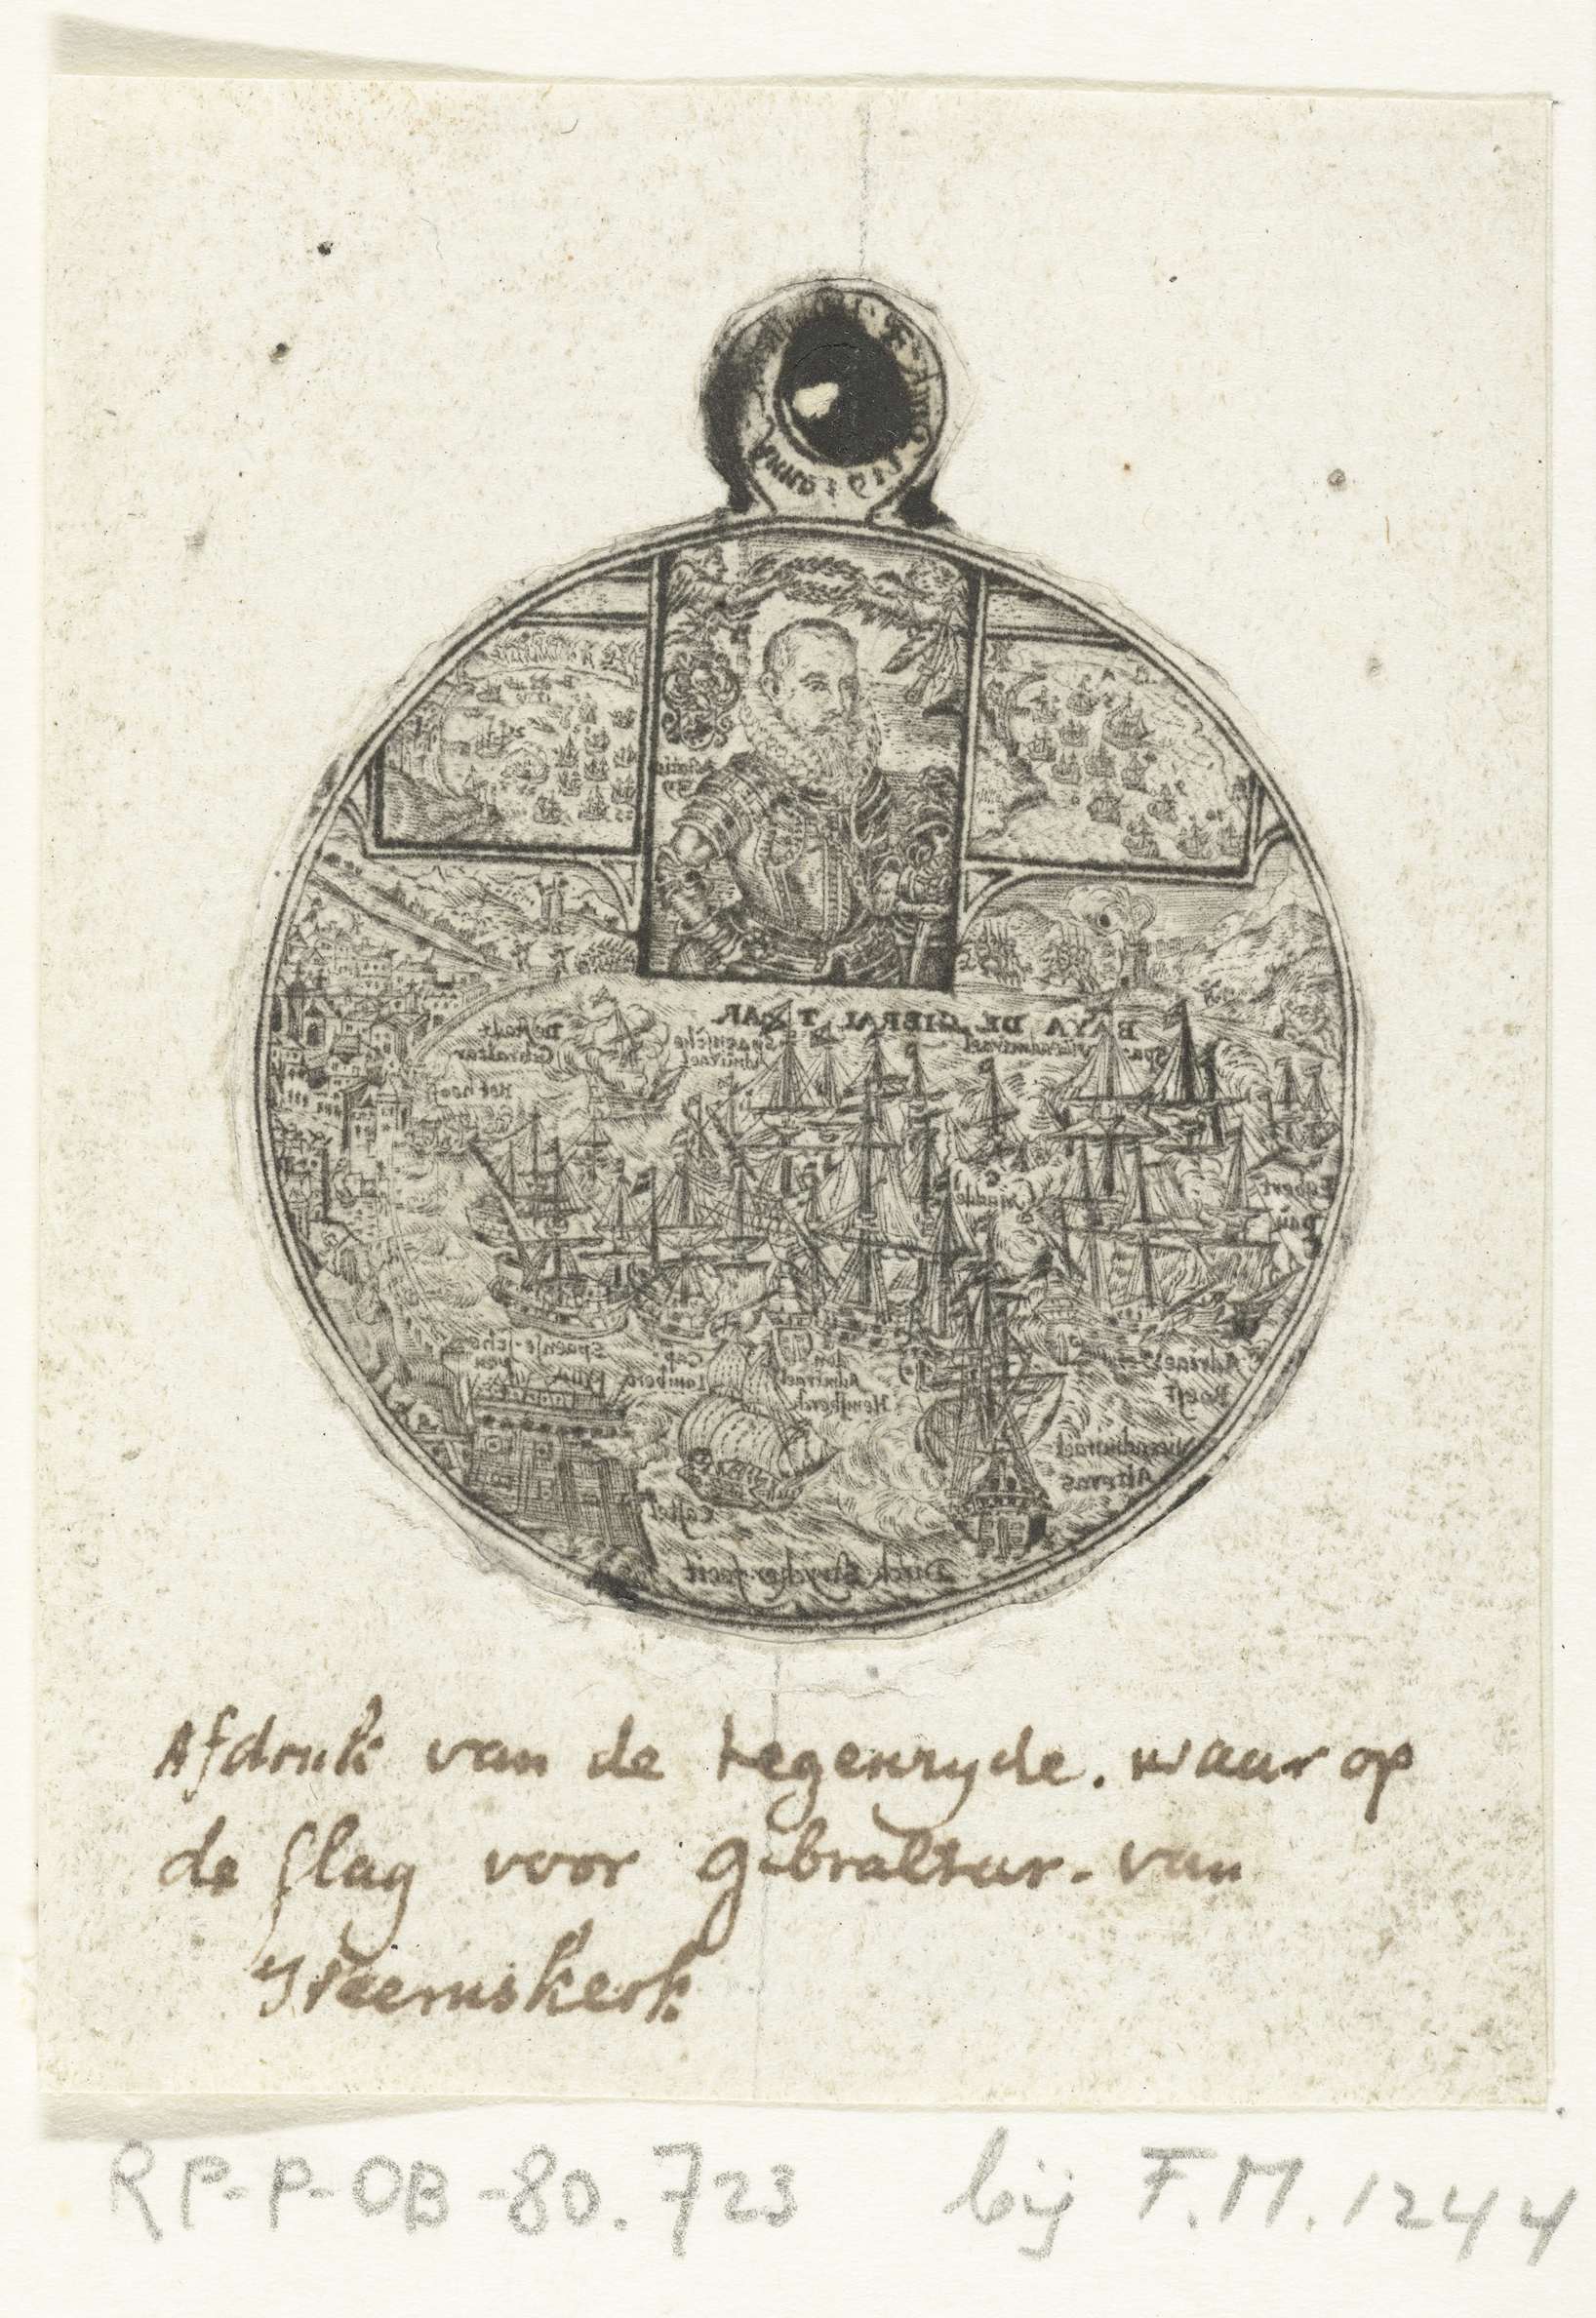 Anno
BAYA DE GIBRALTAR
De stadt
Gibraltar
Spaensche
Admirael
Spa:
viceadmirael
Het hoof
Egbert
Spaense schepen
Cap.
Lambert
den
Admirael
Hemskerck
Adriae
Roest
viceadmirael
Alteras
Castel
Dirck Strycker fecit
Afdruk van de tegenzyde. waar op
de slag voor Gibraltar. van
Heemskerk
RP-P-OB-80.723 bij F.M. 1244